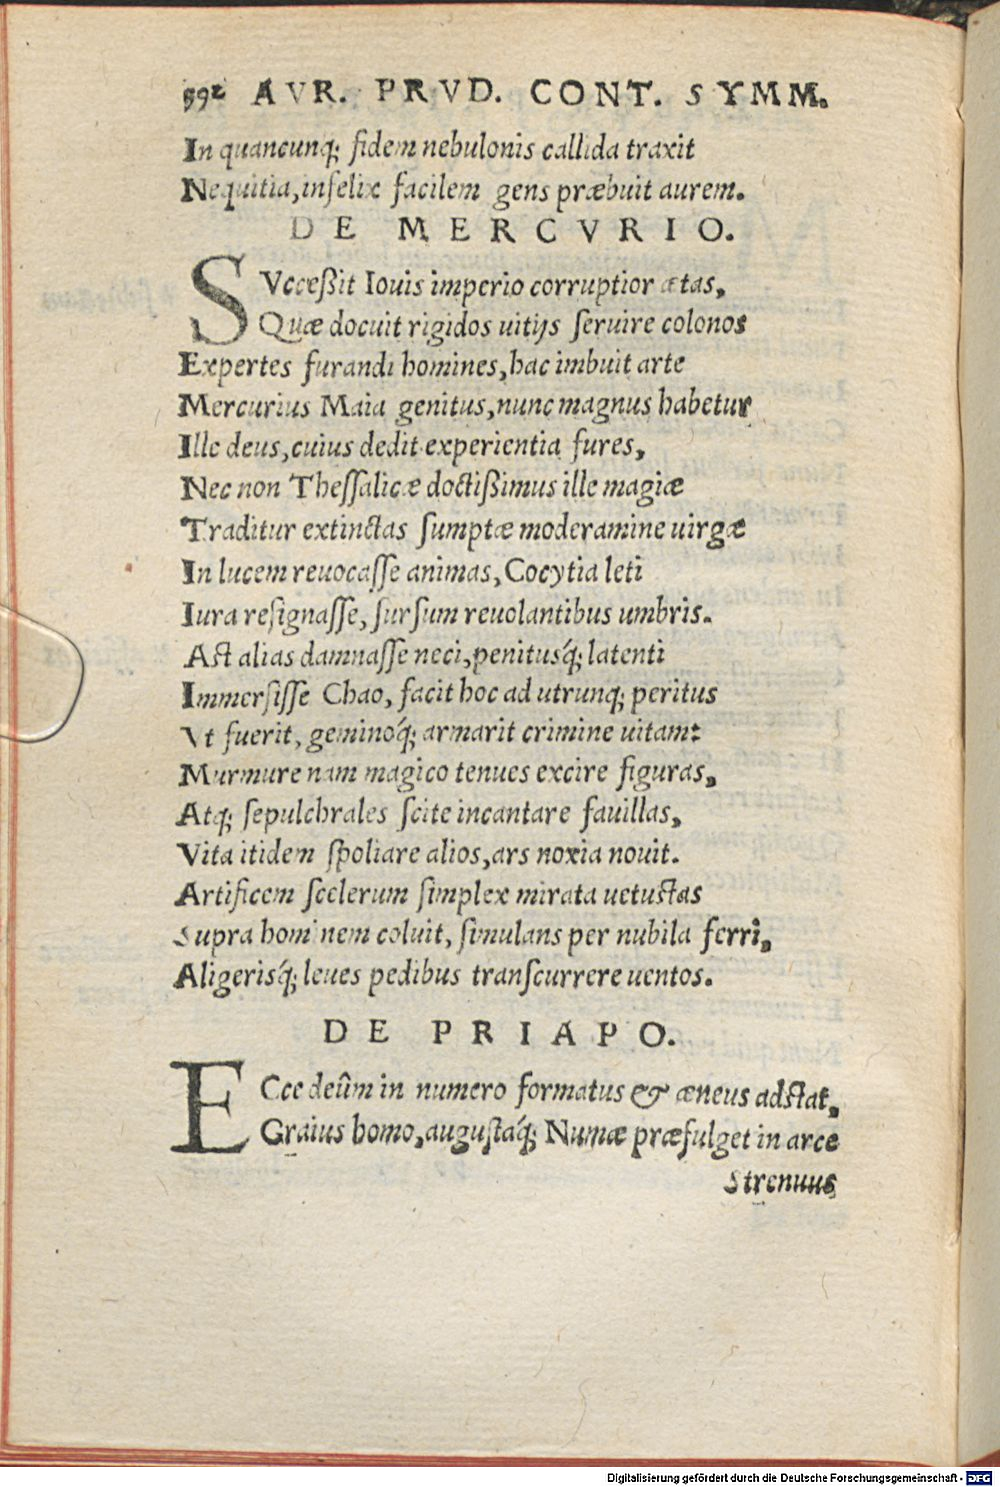 592 AVR. PRVD. CONT. SYMM.
In quancunq; fidem nebulonis callida traxit
Nequitia, infelix facilem gens præbuit aurem.
DE MERCVRIO.
SVcceßit Iouis imperio corruptior ætas,
Quæ docuit rigidos uitijs seruire colonos
Expertes furandi homines, hac imbuit arte
Mercurius Maia genitus, nunc magnus habetur
Ille deus, cuius dedit experientia fures,
Nec non Thessalicæ doctißimus ille magiæ
Traditur extinctas sumptæ moderamine uirgæ
In lucem reuocasse animas, Cocytia leti
Iura resignasse, sursum reuolantibus umbris.
Ast alias damnasse neci, penitusq́; latenti
Immersisse Chao, facit hoc ad utrunq; peritus
Vt fuerit, geminoq́; armarit crimine uitam:
Murmure nam magico tenues excire figuras,
Atq; sepulchrales scite incantare fauillas,
Vita itidem spoliare alios, ars noxia nouit.
Artificem scelerum simplex mirata uetustas
Supra hominem coluit, simulans per nubila ferri,
Aligerisq́; leues pedibus transcurrere uentos.
DE PRIAPO.
ECce deûm in numero formatus & æneus adstat,
Graius homo, augustaq́; Numæ præfulget in arce
Strenuus
Digitalisierung gefördert durch die Deutsche Forschungsgemeinschaft - DFG